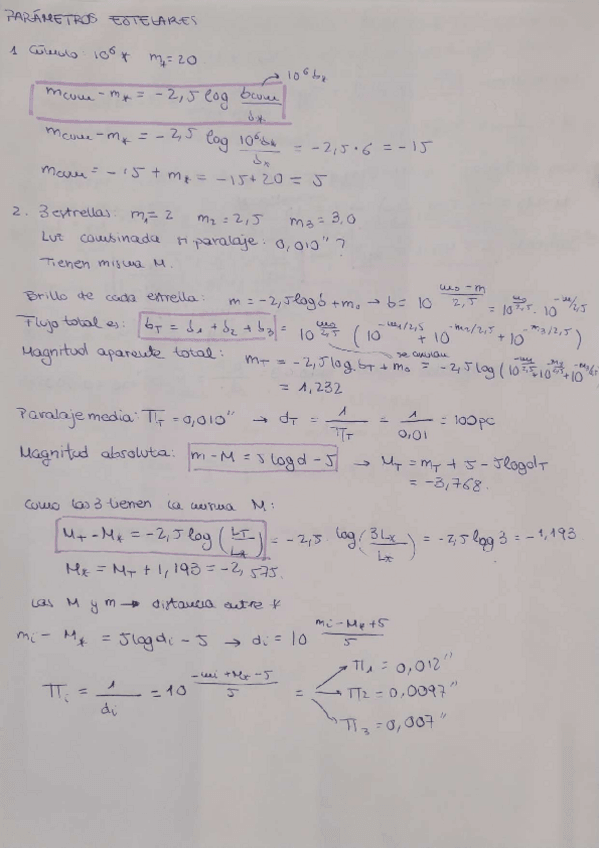 PARÁMETROS ESTELARES
1 Cúmulo 10⁶ * m* = 20
m cum - m* = -2,5 log b cum / b* → 10⁶ b*
m cum - m* = -2,5 log 10⁶ b* / b* = -2,5 · 6 = -15
m cum = -15 + m* = -15 + 20 = 5
2. 3 estrellas: m1 = 2 m2 = 2,5 m3 = 3,0
Luz combinada π paralaje: 0,010" ?
Tienen misma M.
Brillo de cada estrella: m = -2,5 log b + m0 → b = 10^((m0 - m)/2,5) = 10^(m0/2,5) · 10^(-m/2,5)
Flujo total es: bT = b1 + b2 + b3 = 10^(m0/2,5) (10^(-m1/2,5) + 10^(-m2/2,5) + 10^(-m3/2,5))
se anulan
Magnitud aparente total: mT = -2,5 log bT + m0 = -2,5 log (10^(-m1/2,5) + 10^(-m2/2,5) + 10^(-m3/2,5)
= 1,232
Paralaje media: πT = 0,010" → dT = 1/πT = 1/0,01 = 100pc
Magnitud absoluta: m - M = 5 log d - 5 → MT = mT + 5 - 5 log dT
= -3,768.
Como las 3 tienen la misma M:
MT - M* = -2,5 log (LT/L*) = -2,5 log (3L*/L*) = -2,5 log 3 = -1,193
M* = MT + 1,193 = -2,575.
Las M y m → distancia entre *
mi - M* = 5 log di - 5 → di = 10^((mi - M* + 5)/5)
πi = 1/di = 10^((-mi + M* - 5)/5) = π1 = 0,012"
π2 = 0,0097"
π3 = 0,007"